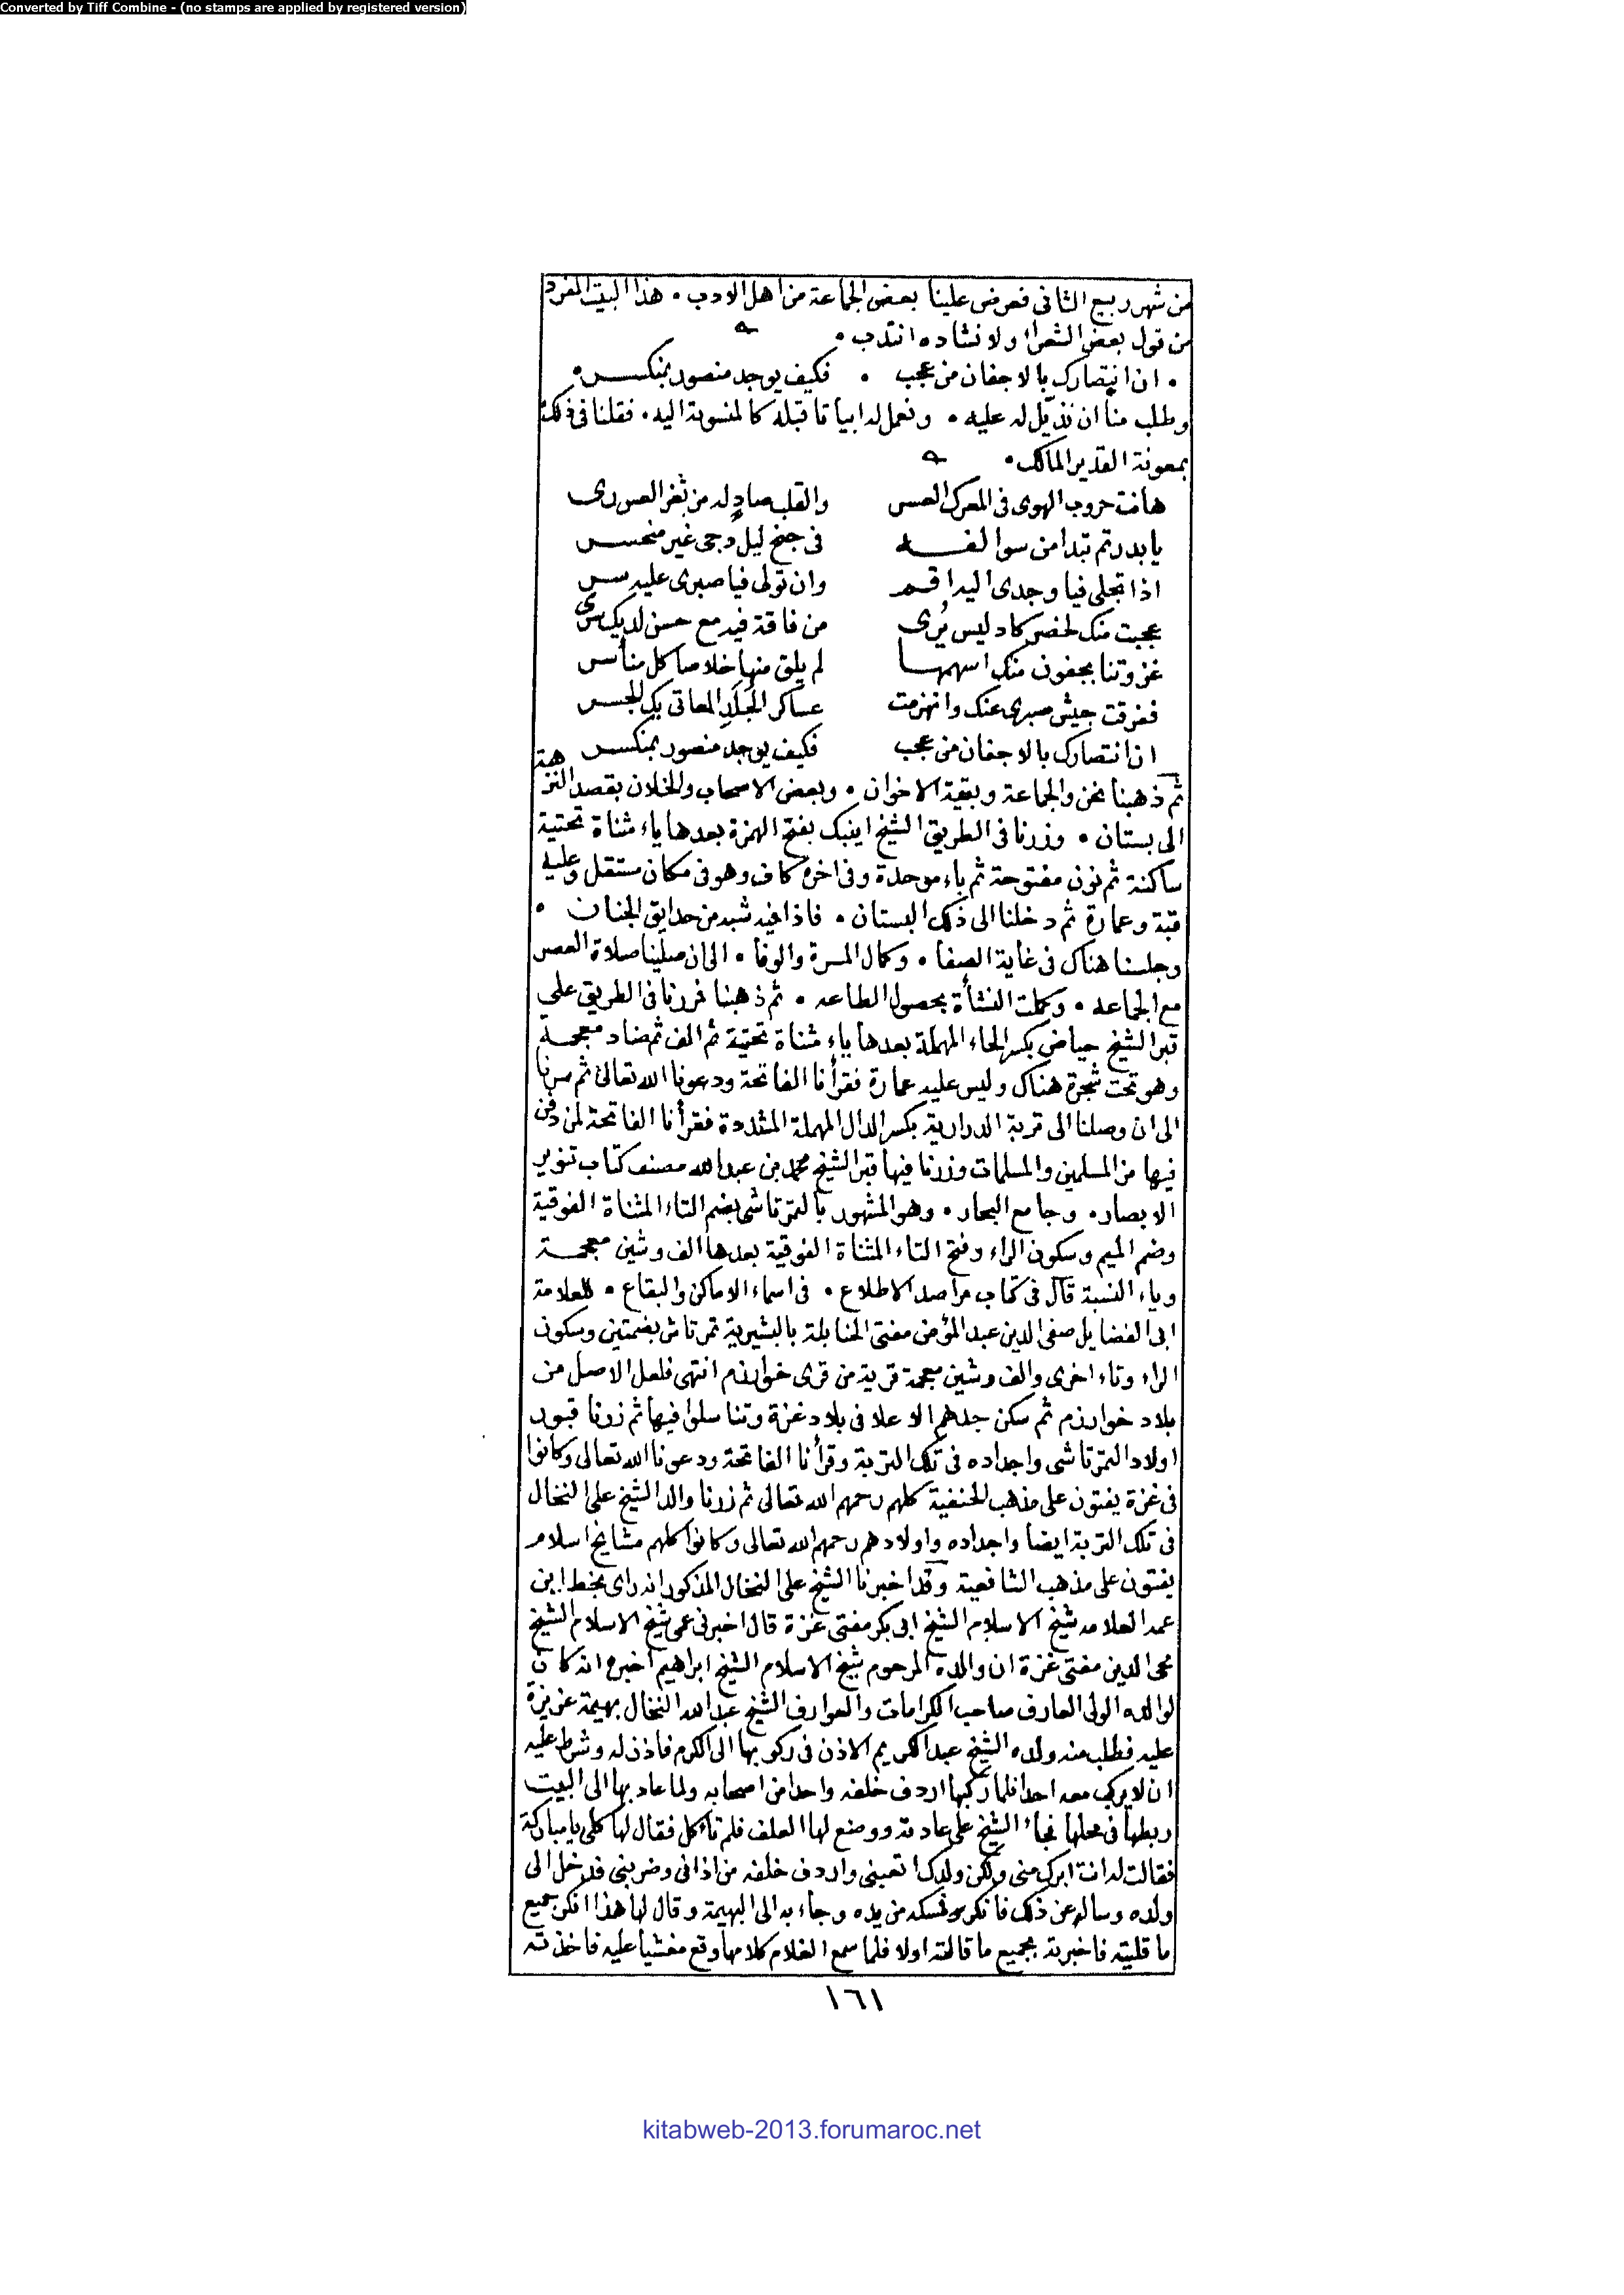 Converted by Tiff Combine - (no stamps are applied by registered version)
من شهر ربيع الثانى فعرض علينا بعض الجماعة من اهل الادب • هذا البيت المفرد
من قول بعض الشعرا ولانشاده انتدب •
• ان انتصارك بالاجفان من عجب • فكيف يوجد منصور بمنكسر •
وطلب منا ان نذيّل له عليه • ونعمل له ابياتا قبله كالمنسوبة اليه • فقلنا فى ذلك
بمعونة القدير المالك •
هانت حروب الهوى فى المعرك العسر والقلب صادٍ له من ثغر
يا بدر تم تبدا من سوالفه فى جنح ليل دجى غير منحسر
اذا تجلى فيا وجدى اليه اقم وان تولى فيا صبرى عليه سر
عجبت منك لخصر كاد ليس يُرى من فاقة فيه مع حسن لديك سرى
غزوتنا بجفون منك اسهمها لم يلق منها خلاصا كل منأسر
ففرقت جيش صبرى عنك وانهزمت عساكر الجَلَدِ العاتى بكل
ان انتصارك بالاجفان من عجب فكيف يوجد منصور بمنكسر
ثم ذهبنا نحن والجماعة وبقية الاخوان • وبعض الاصحاب والخلان بقصد النزهة
الى بستان • وزرنا فى الطريق الشيخ اينبك بفتح الهمزة بعدها ياء مثناة تحتية
ساكنة ثم نون مفتوحة ثم باء موحدة وفى اخره كاف وهو فى مكان مستقل وعليه
قبة وعمارة ثم دخلنا الى ذلك البستان • فاذا فيه شبه من حدايق الجنان •
وجلسنا هناك فى غاية الصفا • وكمال المسرة والوفا • الى ان صلينا صلاة العصر
مع الجماعه • وكملت النشأة بحصول الطاعه • ثم ذهبنا فمررنا فى الطريق على
قبر الشيخ حياض بكسر الحاء المهملة بعدها ياء مثناة تحتية ثم الف ثم ضاد معجمة
وهو تحت شجرة هناك وليس عليه عمارة فقرأنا الفاتحة ودعونا الله تعالى ثم سرنا
الى ان وصلنا الى تربة الدرارية بكسر الدال المهملة المشددة فقرأنا الفاتحة لمن دفن
فيها من المسلمين والمسلمات وزرنا فيها قبر الشيخ محمد بن عبد الله مصنف كتاب تنوير
الابصار • وجامع البحار • وهو المشهور بالتمرتاشى بضم التاء المثناة الفوقية
وضم الميم وسكون الراء وفتح التاء المثناة الفوقية بعدها الف وشين معجمة
وياء النسبة قال فى كتاب مراصد الاطلاع • فى اسماء الاماكن والبقاع • للعلامة
ابى الفضايل صفى الدين عبد المؤمن مفتى الحنابلة بالبشيرية تمرتاش بضمتين وسكون
الراء وتاء اخرى والف وشين معجمة قرية من قرى خوارزم انتهى فلعل الاصل من
بلاد خوارزم ثم سكن جدهم الاعلا فى بلاد غزة وتناسلوا فيها ثم زرنا قبور
اولاد التمرتاشى واجداده فى تلك التربة وقرأنا الفاتحة ودعونا الله تعالى وكانوا
فى غزة يفتون على مذهب الحنفية كلهم رحمهم الله تعالى ثم زرنا والد الشيخ على النخال
فى تلك التربة ايضا واجداده واولادهم رحمهم الله تعالى وكانوا كلهم مشايخ اسلام
يفتون على مذهب الشافعية وقد اخبرنا الشيخ على النخال المذكور انه راى بخط ابن
عمه العلامه شيخ الاسلام الشيخ ابى بكر مفتى غزة قال اخبرنى عمى شيخ الاسلام الشيخ
محى الدين مفتى غزة ان والده المرحوم شيخ الاسلام الشيخ ابراهيم اخبره انه كان
لوالده الولى العارف صاحب الكرامات والعوارف الشيخ عبد الله النخال بهيمة عزيزة
عليه فطلب منه ولده الشيخ عبد الكريم الاذن فى ركوبها الى الكرم فاذن له وشرط عليه
ان لا يركب معه احدا فلما ركبها اردف خلفه واحدا من اصحابه ولما عاد بها الى البيت
ربطها فى محلها فجاء الشيخ على عادته ووضع لها العلف فلم تأكل فقال لها كلى يا مباركة
فقالت له انت ابرك منى ولكن ولدك اتعبنى واردف خلفه من اذانى وضربنى فدخل الى
ولده وساله عن ذلك فانكر فمسكه من يده وجاء به الى البهيمة وقال لها هذا انكر جميع
ما قلتيه فاخبرته بجميع ما قالته اولا فلما سمع الغلام كلامها وقع مغشيا عليه فاخذته
١٦١
kitabweb-2013.forumaroc.net